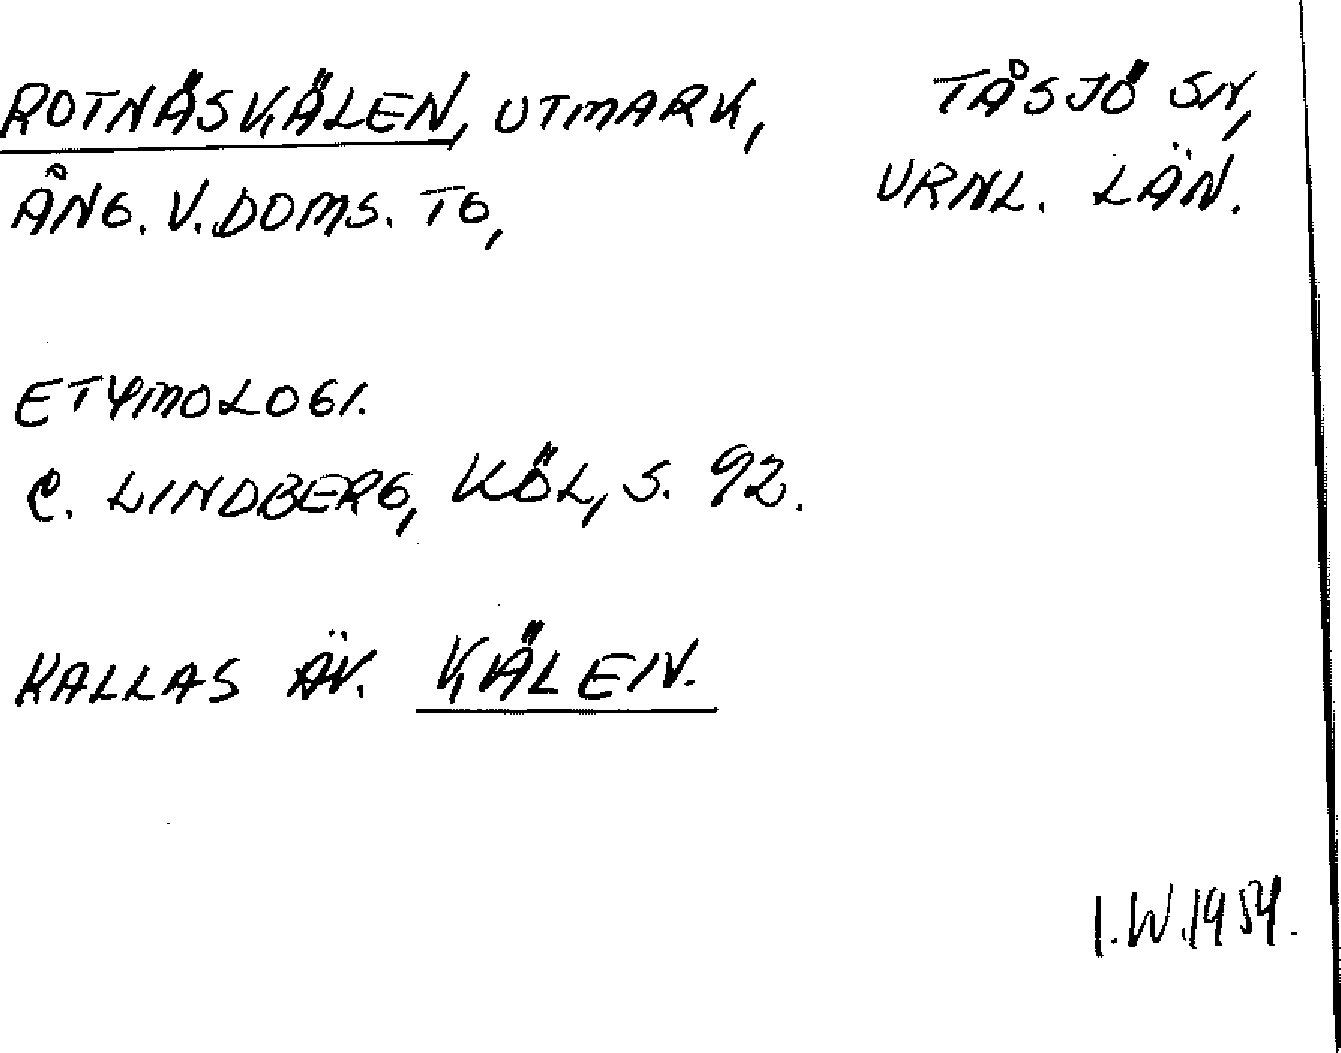 ROTNÄSKÄLEN, UTMARK, TÅSJÖ SN,
ÅNG. V. DOMS. TG, VRNL. LÄN.
ETYMOLOGI.
C. LINDBERG, KÖL, S. 92.
KALLAS ÄV. KÄLEN.
I.W. 1954.